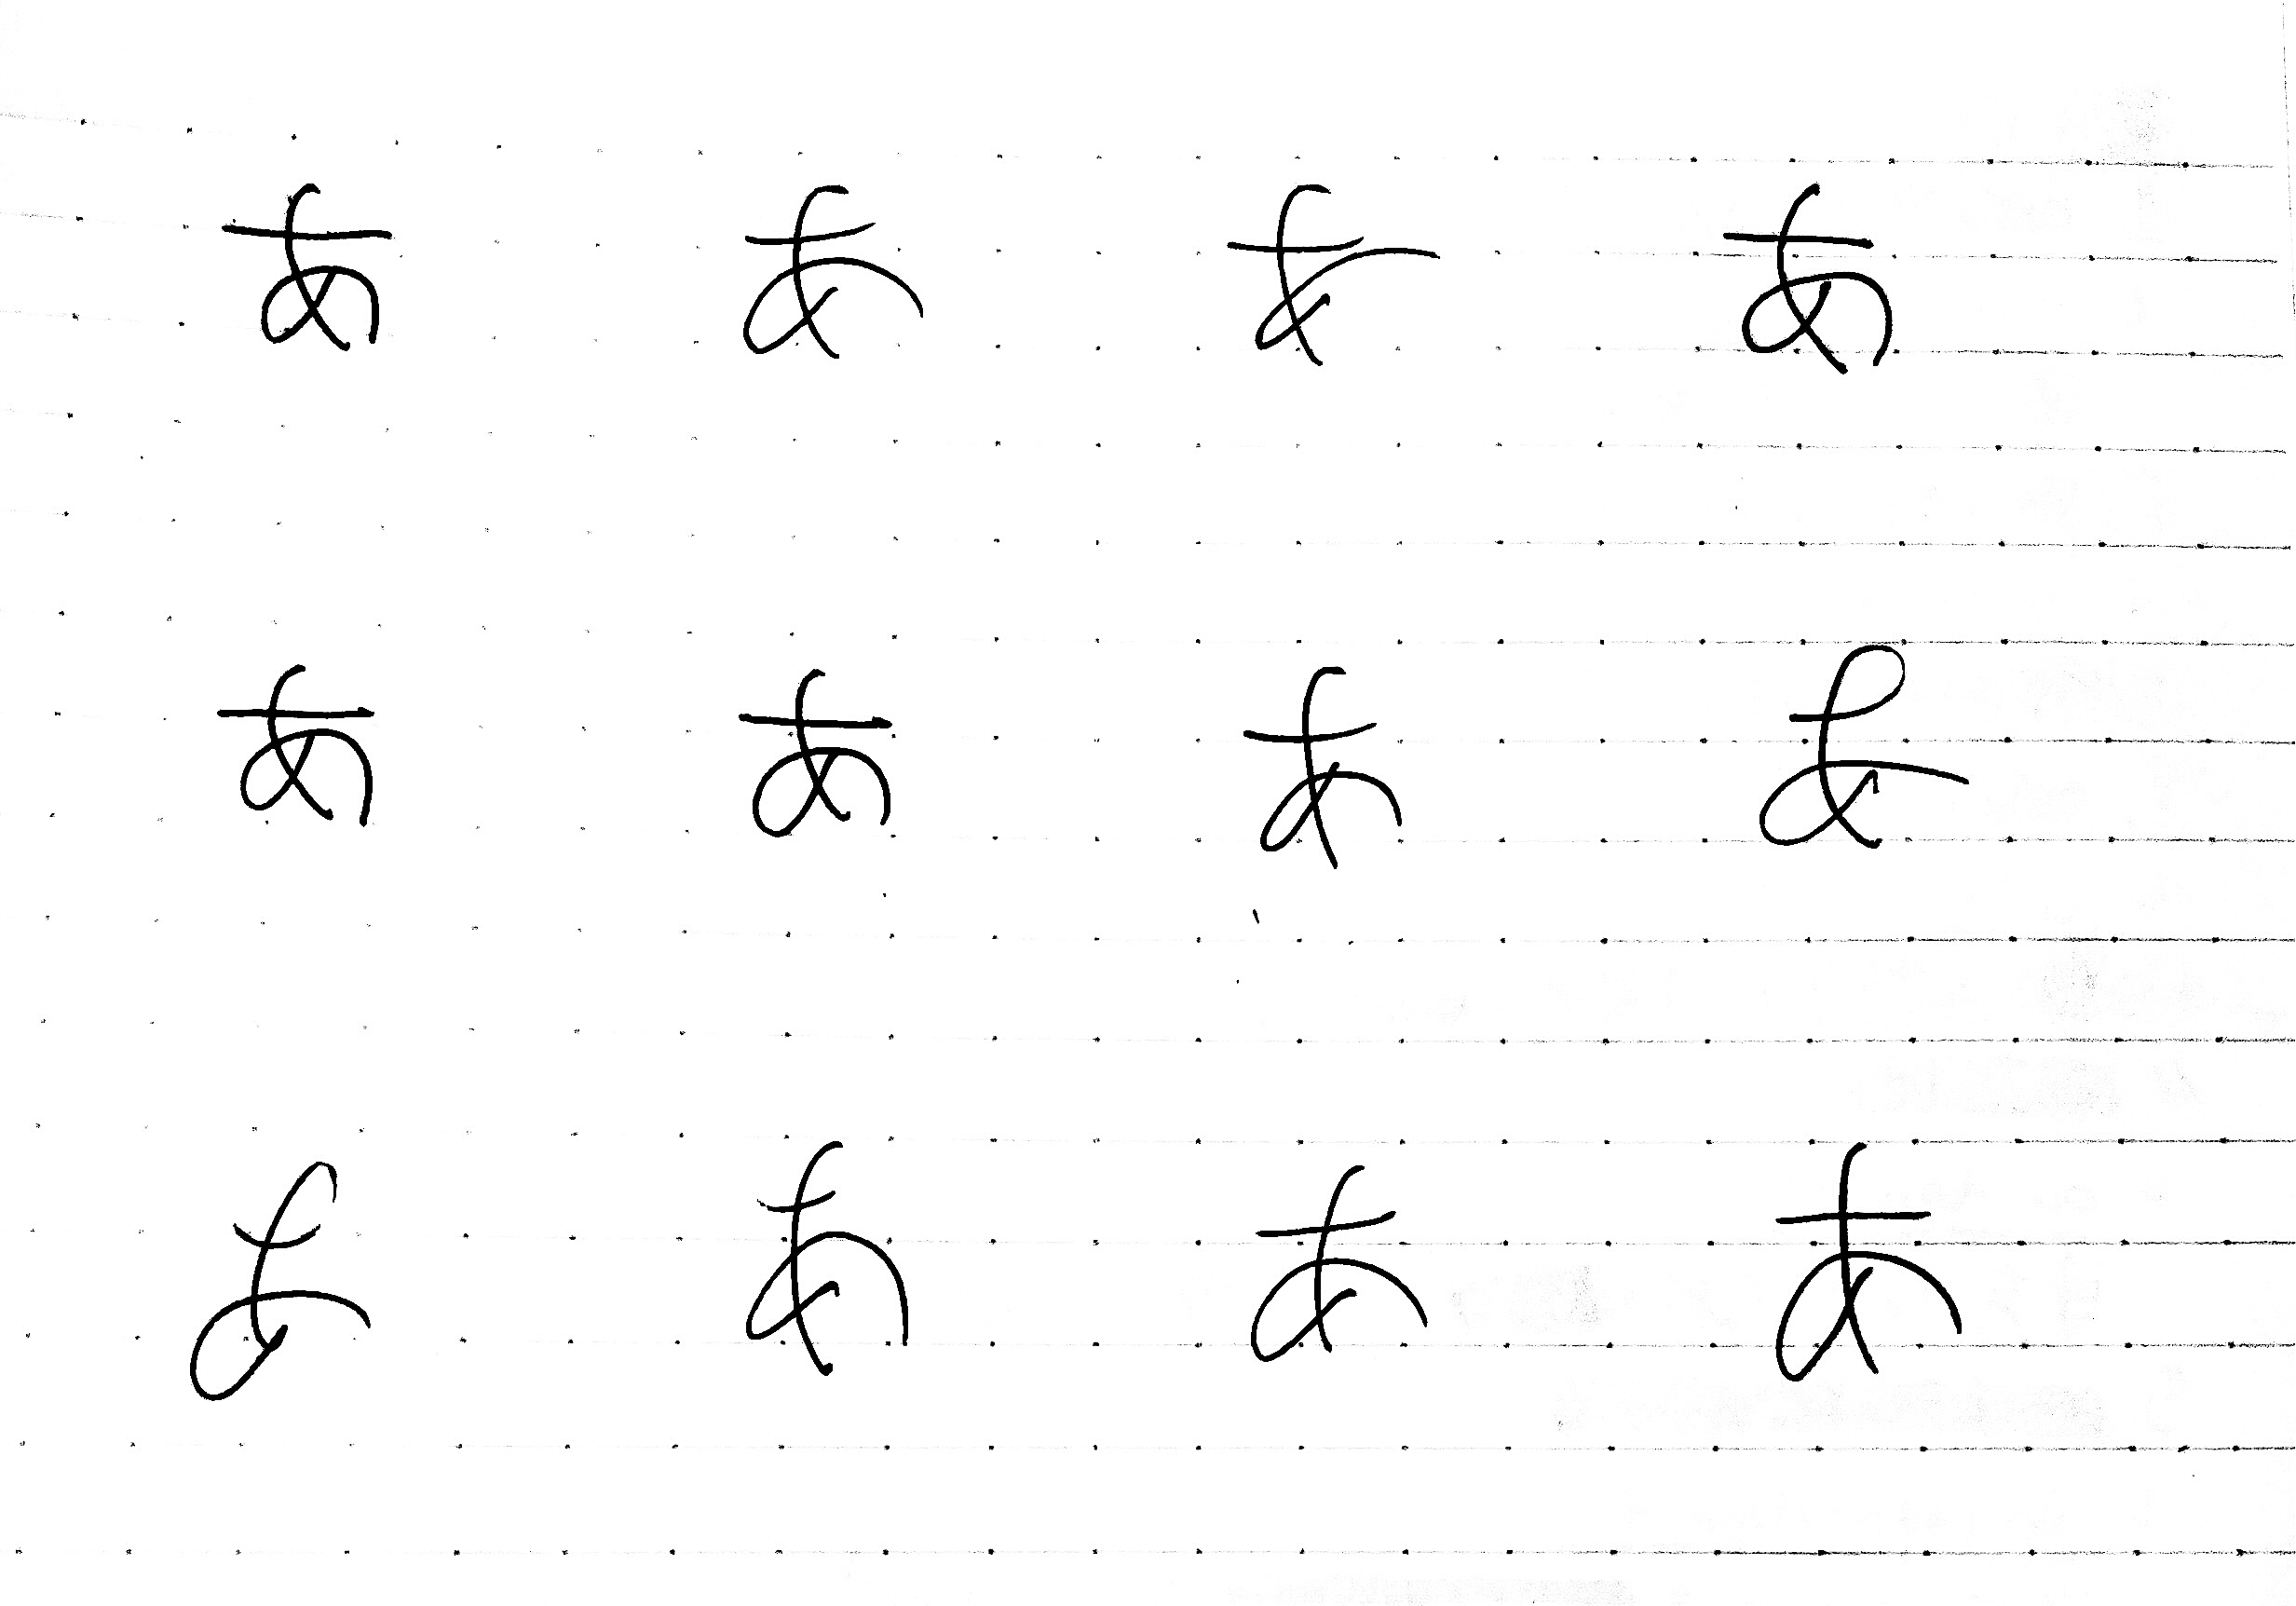 あ あ あ あ
あ あ あ あ
あ あ あ あ